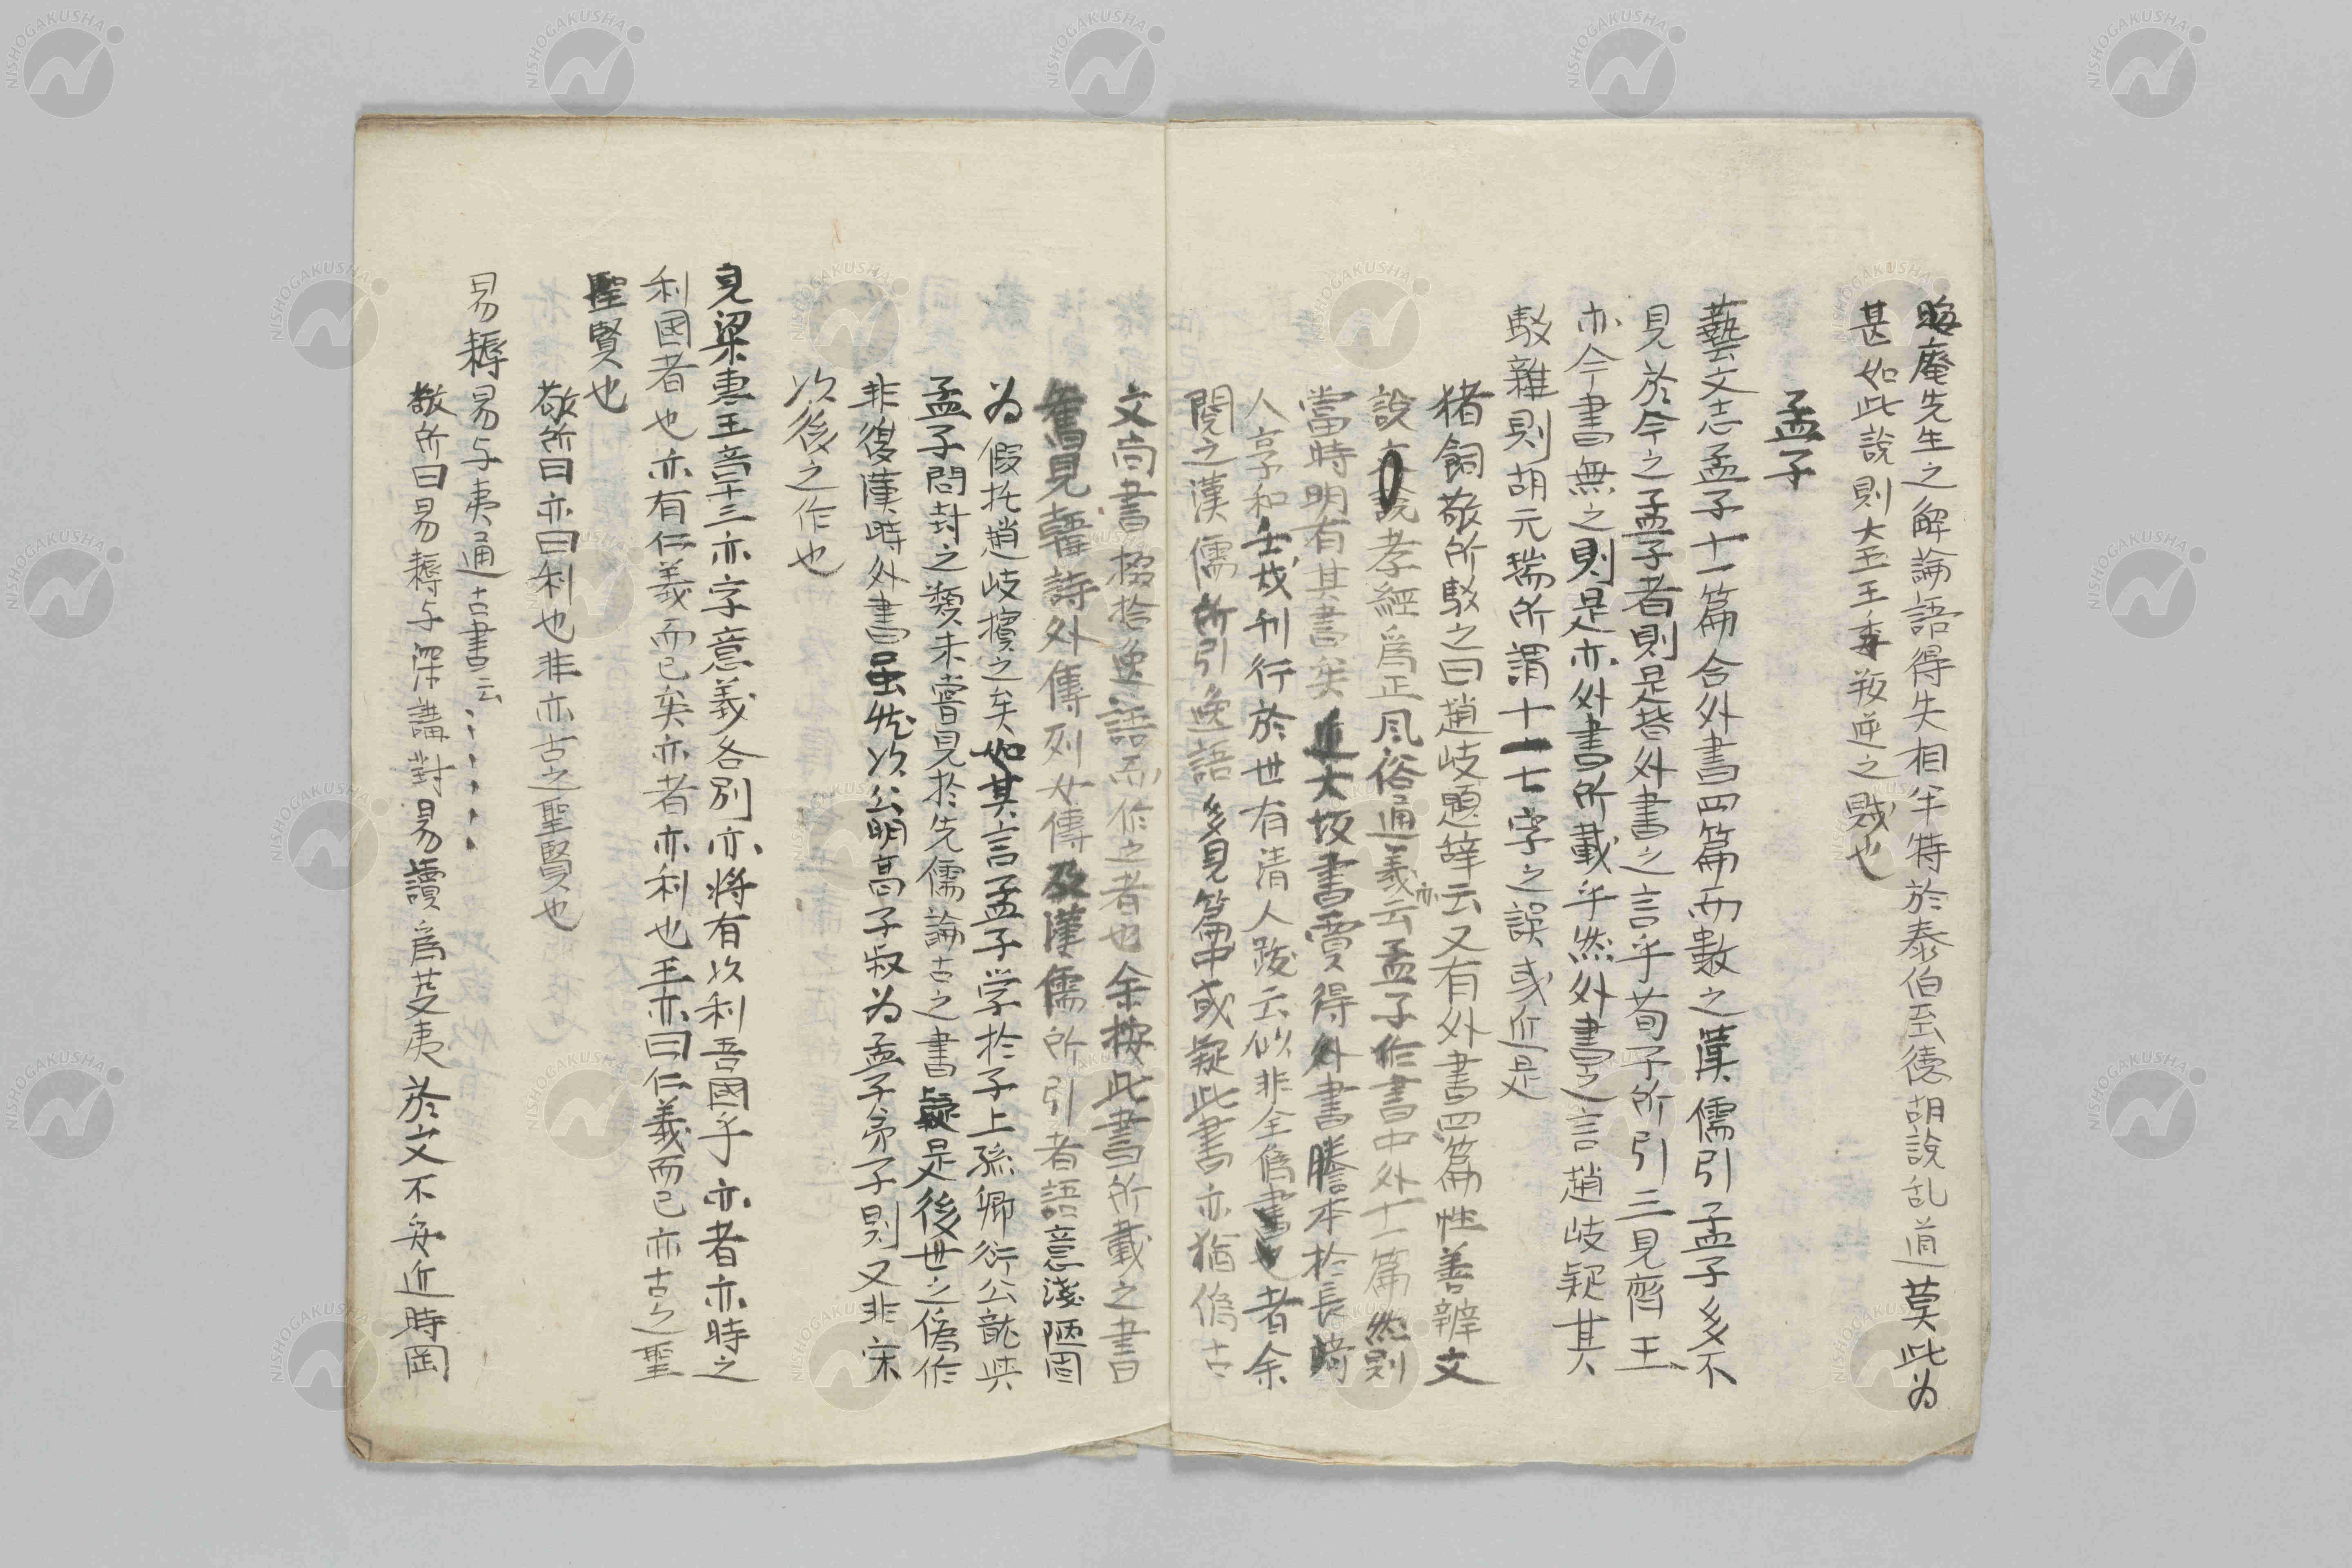 晦庵先生之解論語得失相半特於泰伯至德胡説乱道莫此为
甚如此説則大王王季叛逆之賊也
孟子
藝文志孟子十一篇合外書四篇而數之漢儒引孟子多不
見於今之孟子者則是皆外書之言乎荀子所引三見齊王
亦今書無之則是亦外書所載乎然外書之言趙岐疑其
駁雜則胡元瑞所謂十一七字之誤或近是
猪飼敬所駁之曰趙岐題辞云又有外書四篇性善辨文
説孝經爲正風俗通義亦云孟子作書中外十一篇然則
當時明有其書矣近大坂書賈得外書謄本於長崎
人享和壬戌刊行於世有清人跋云似非全偽書也者余
閲之漢儒所引逸語多見篇中或疑此書亦猶偽古
文尚書掇拾逸語而作之者也余按此書所載之書
舊見韓詩外傳列女傳及漢儒所引者語意淺陋固
为假托趙岐擯之矣如其言孟子学於子上孫卿衍公龍与
孟子問封之類未嘗見於先儒論古之書疑是後世之偽作
非復漢時外書虽然以公明高子叔为孟子弟子則又非宋
以後之作也
見梁惠王章十三亦字意義各別亦将有以利吾國乎亦者亦時之
利國者也亦有仁義而已矣亦者亦利也王亦曰仁義而已亦古之聖
聖賢也
敬所曰亦曰利也非亦古之聖賢也
易耨易与夷通古書云
敬所曰易耨与深講對易讀爲芟夷於文不妥近時岡